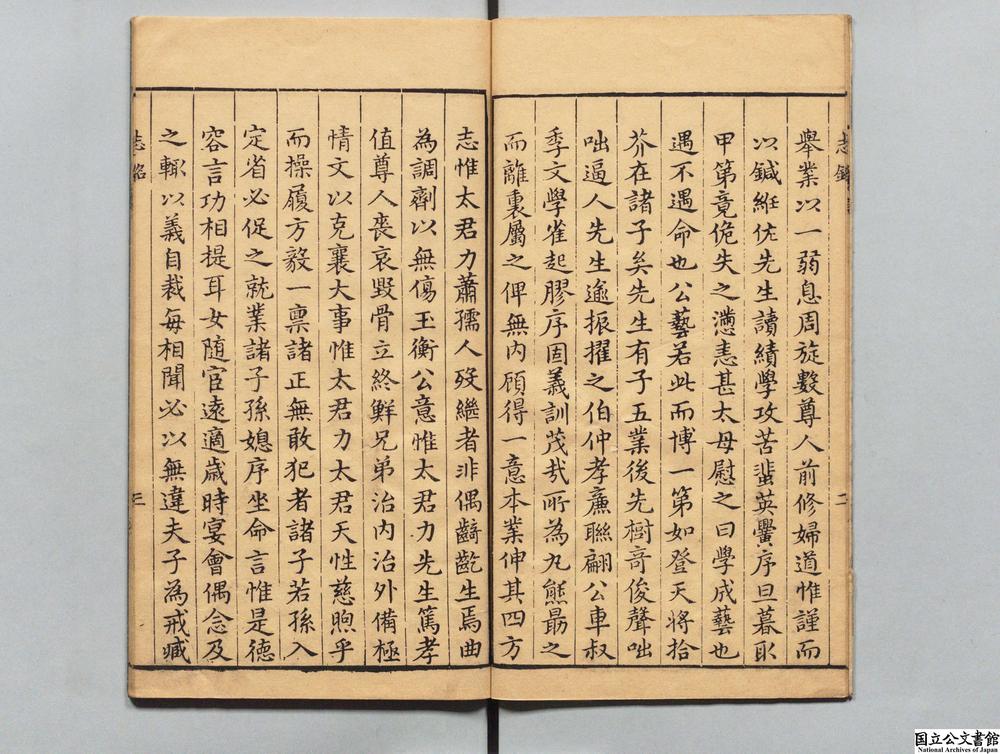 舉業以一弱息周旋數尊人前修婦道惟謹而
以鍼絍佐先生讀績學攻苦蜚英黌序旦暮取
甲第竟佹失之懣恚甚太母慰之曰學成藝也
遇不遇命也公藝若此而博一第如登天將拾
芥在諸子矣先生有子五業後先樹奇俊聲咄
咄逼人先生遂振擢之伯仲孝廉聯翩公車叔
季文學雀起膠序固義訓茂哉所為丸熊勗之
而離裏屬之俾無内顧得一意本業伸其四方
志惟太君力蕭孺人歿繼者非偶齮齕生焉曲
為調劑以無傷玉衡公意惟太君力先生篤孝
值尊人喪哀毀骨立終鮮兄弟治内治外備極
情文以克襄大事惟太君力太君天性慈煦乎
而操履方毅一禀諸正無敢犯者諸子若孫入
定省必促之就業諸子孫媳序坐命言惟是德
容言功相提耳女随宦遠適歲時宴會偶念及
之輒以義自裁每相聞必以無違夫子為戒臧
志銘
二
三
国立公文書館
National Archives of Japan